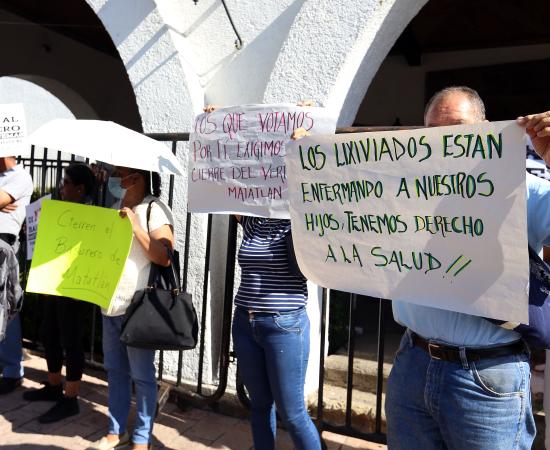 AL
ERO
Cierren el
Basurero de
Matatlán
LOS QUE VOTAMOS
POR TI EXIGIMOS
CIERRE DEL VER
MATATLAN
LOS LIXIVIADOS ESTAN
ENFERMANDO A NUESTROS
HIJOS, TENEMOS DERECHO
A LA SALUD!!